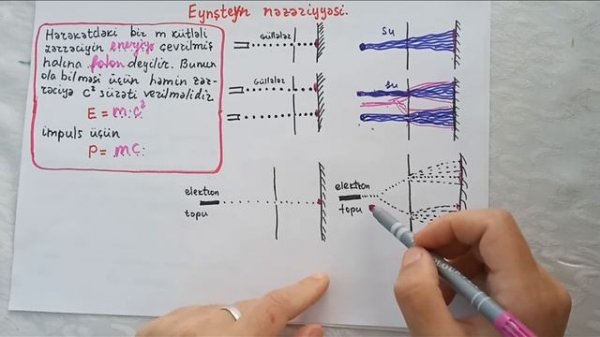 Eynşteyn nəzəriyyəsi.
Hərəkətdəki bir m kütləli
zərrəciyin enerjiyə çevrilmiş
halına foton deyilir. Bunun
ola bilməsi üçün həmin zər-
rəciyə c² sürəti verilməlidir.
E = m·c²
impuls üçün
P = mc
Güllələr
su
Güllələr
su
elektron
topu
elektron
topu